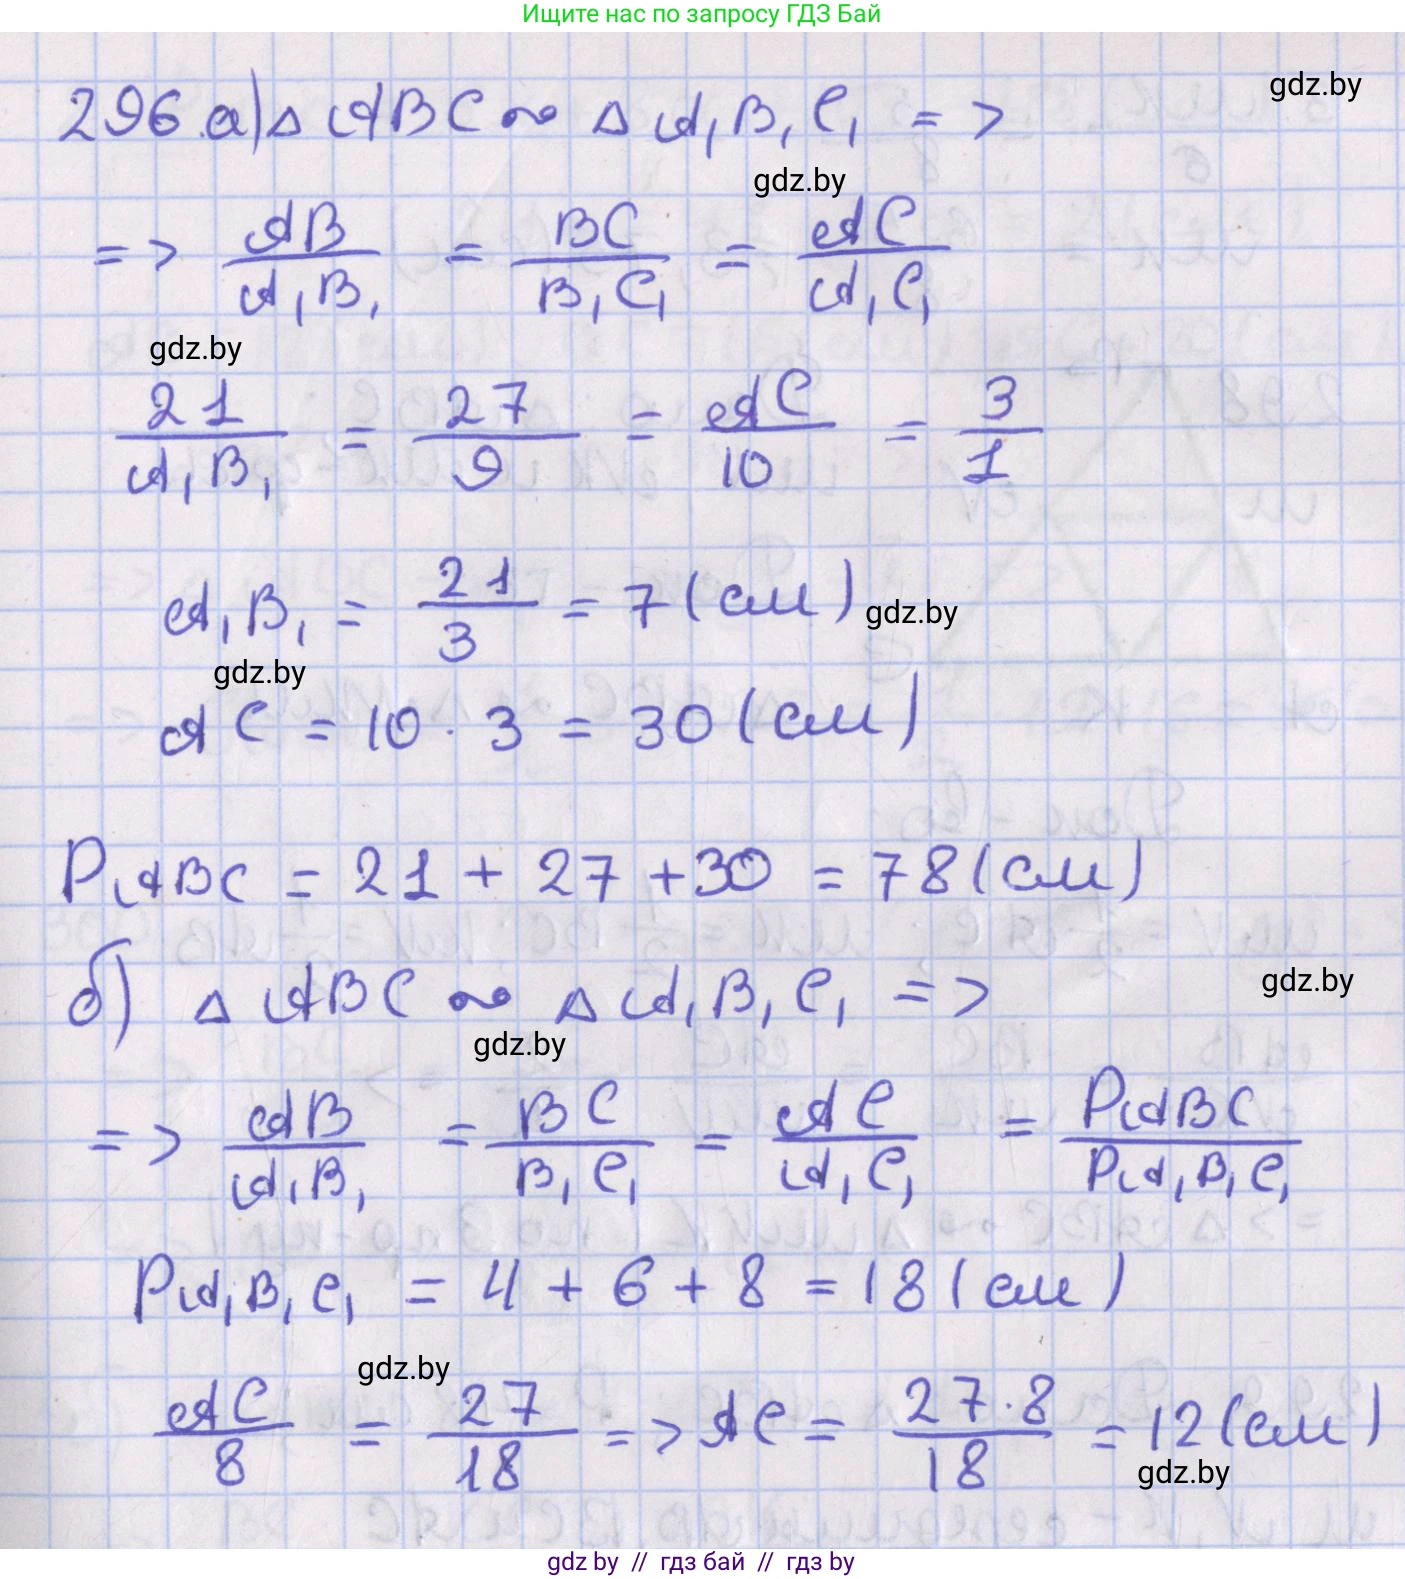 Ищите нас по запросу ГДЗ Бай
gdz.by
296.а) △ ABC ∾ △ A₁B₁C₁ =>
gdz.by
=> AB/A₁B₁ = BC/B₁C₁ = AC/A₁C₁
gdz.by
21/A₁B₁ = 27/9 = AC/10 = 3/1
A₁B₁ = 21/3 = 7 (см)
gdz.by
gdz.by
AC = 10 · 3 = 30 (см)
P ABC = 21 + 27 + 30 = 78 (см)
б) △ ABC ∾ △ A₁B₁C₁ =>
gdz.by
gdz.by
=> AB/A₁B₁ = BC/B₁C₁ = AC/A₁C₁ = P ABC/P A₁B₁C₁
P A₁B₁C₁ = 4 + 6 + 8 = 18 (см)
gdz.by
AC/8 = 27/18 => AC = 27·8/18 = 12 (см)
gdz.by
gdz by // гдз бай // гдз by